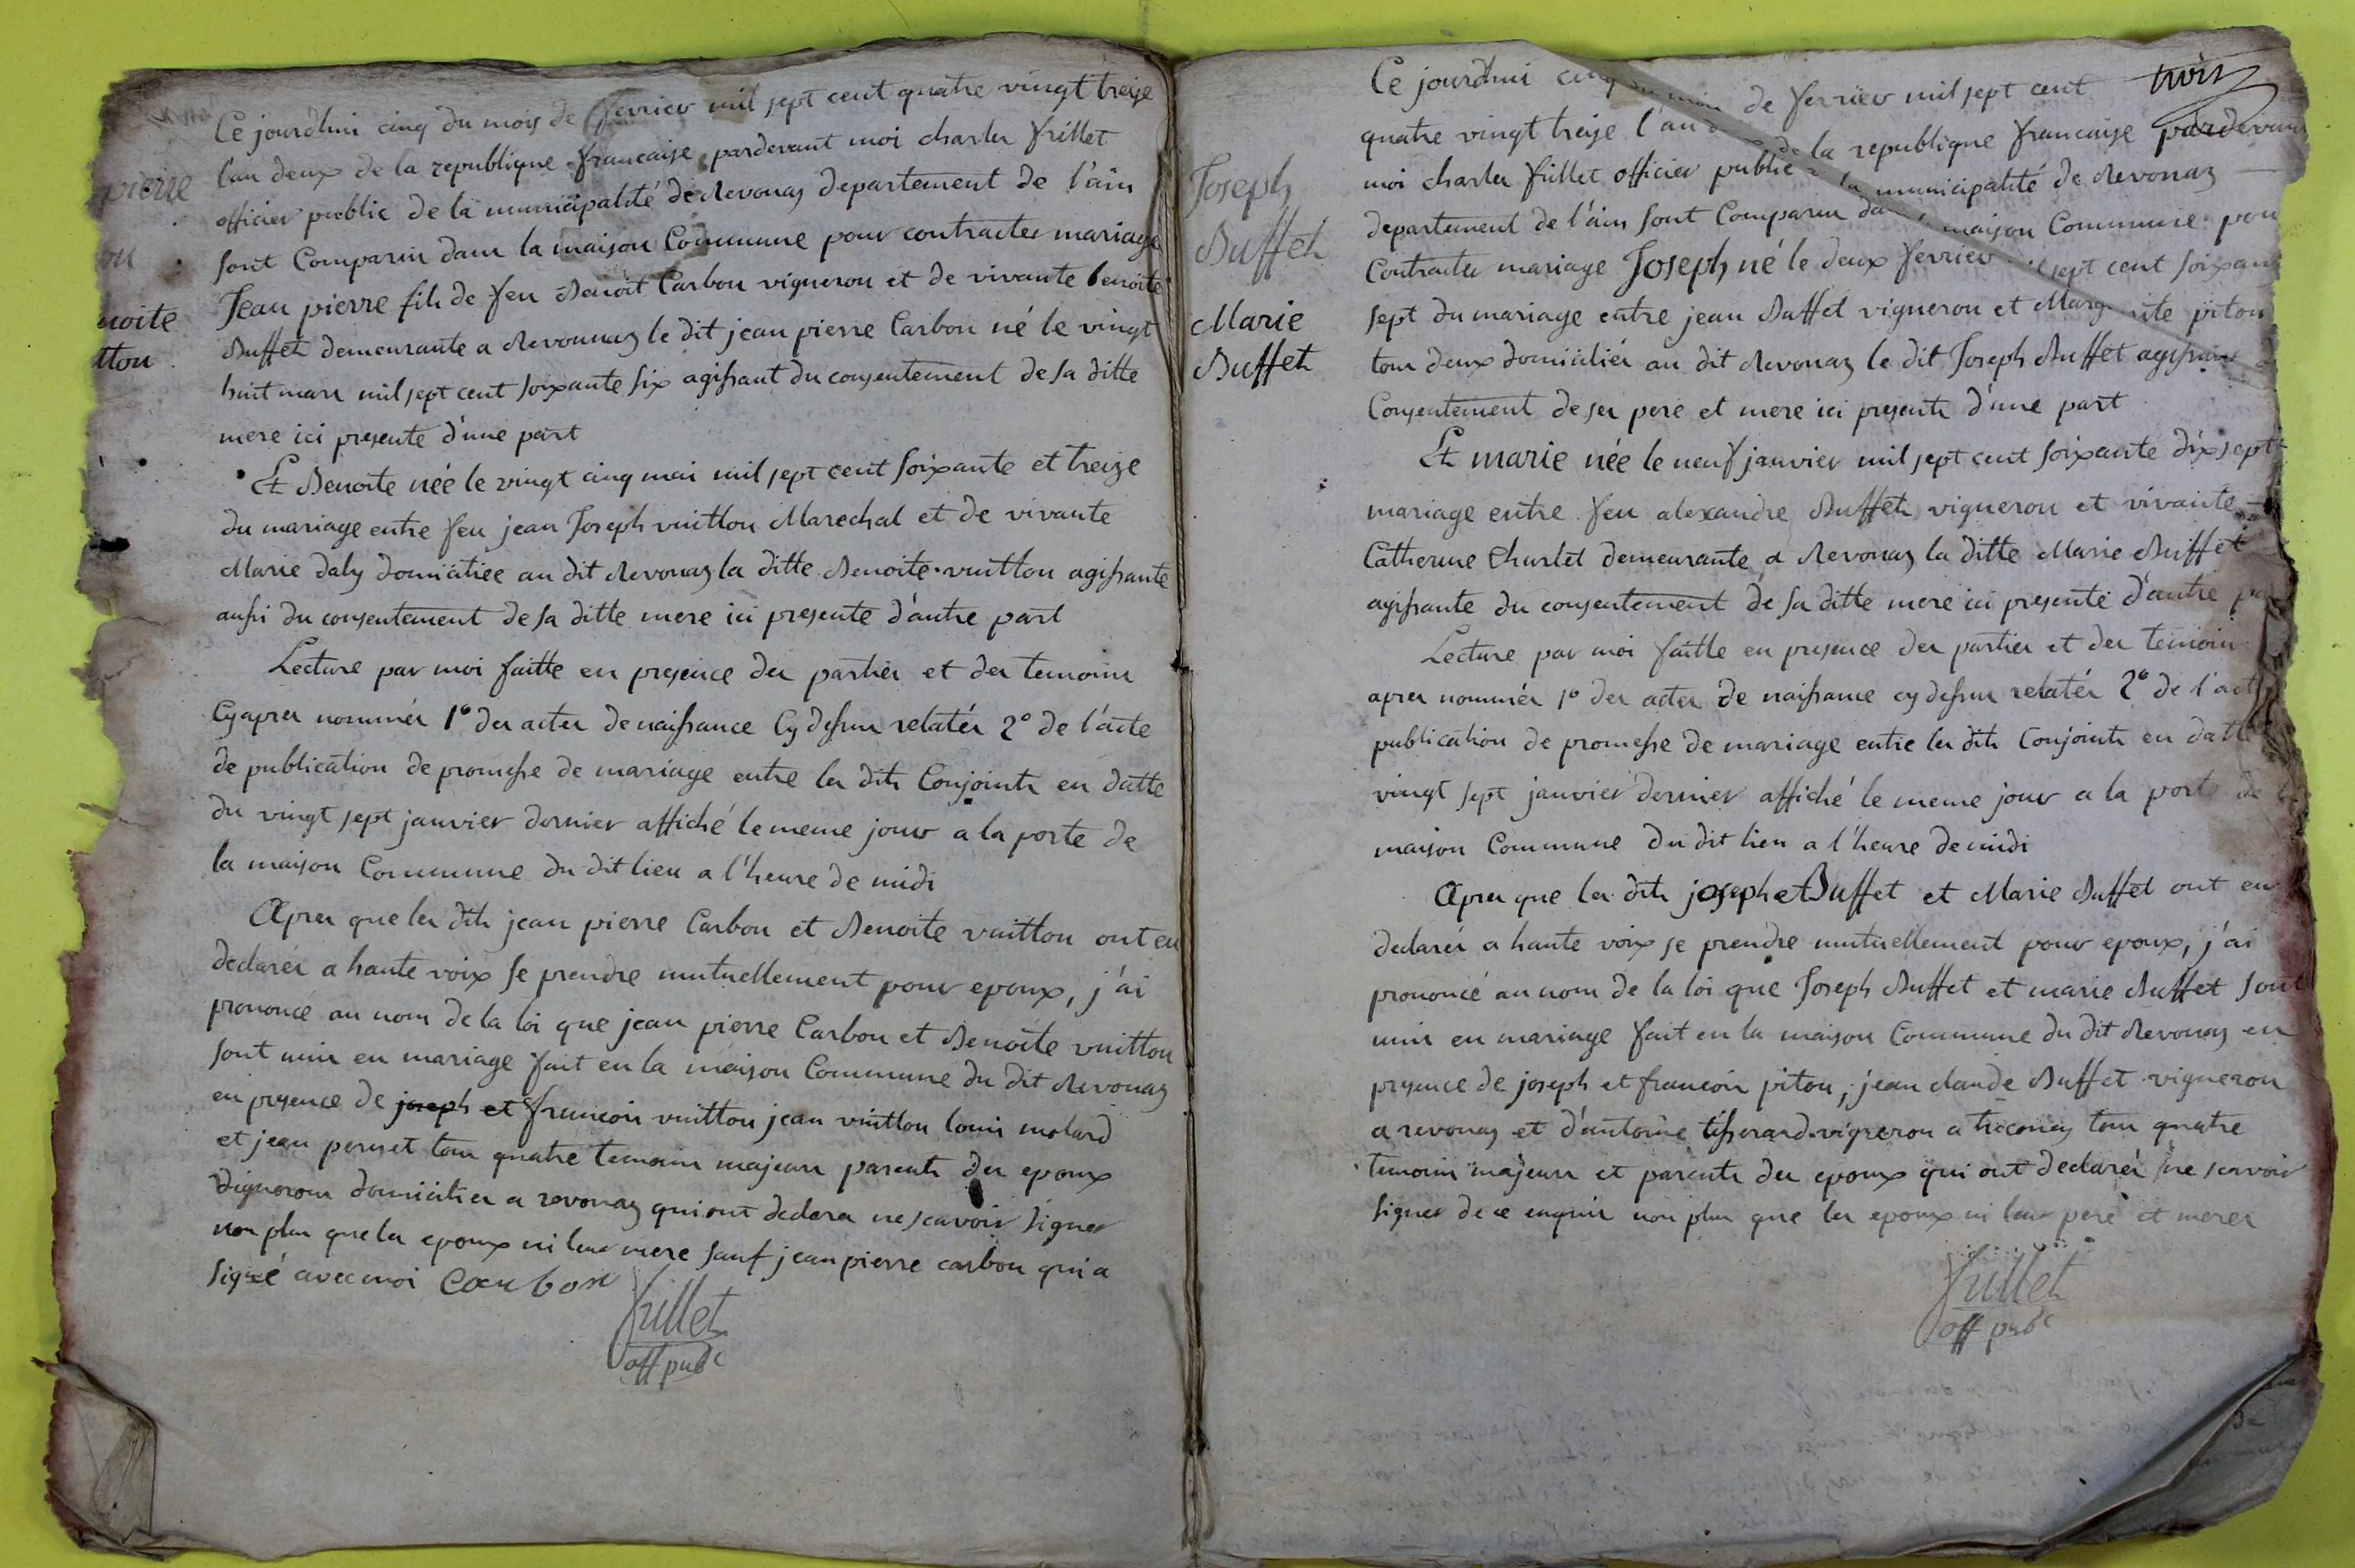 pierre
on
noite
tton
Ce jourdhui cinq du mois de fevrier mil sept cent quatre vingt treize
l'an deux de la republique francaise pardevant moi charles frillet
officier public de la municipalité de Revonas departement de l'ain
sont Comparus dans la maison Commune pour contracter mariage
Jean pierre fils de feu Benoit Carbon vigneron et de vivante benoite
Buffet demeurante a Revonnas le dit jean pierre Carbon né le vingt
huit mars mil sept cent soixante six agissant du consentement de sa ditte
mere ici presente d'une part
Et Benoite née le vingt cinq mai mil sept cent soixante et treize
du mariage entre feu jean Joseph vuitton Marechal et de vivante
Marie daly domiciliée au dit Revonas la ditte Benoite vuitton agissante
aussi du consentement de sa ditte mere ici presente d'autre part
Lecture par moi faitte en presence des parties et des temoins
Cy apres nommés 1° des actes de naissance Cy dessus relatés 2° de l'acte
de publication de promesse de mariage entre les dits Conjoints en datte
du vingt sept janvier dernier affiché le meme jour a la porte de
la maison Commune du dit lieu a l'heure de midi
Apres que les dits jean pierre Carbon et Benoite vuitton ont eu
declarés a haute voix se prendre mutuellement pour epoux, j'ai
prononcé au nom de la loi que jean pierre Carbon et Benoite vuitton
sont unis en mariage fait en la maison Commune du dit Revonas
en presence de joseph et francois vuitton jean vuitton louis molard
et jean pernet tous quatre temoins majeurs parents des epoux
vignerons domicilies a revonas qui ont declara ne scavoir signer
non plus que les epoux ni leur mere sauf jean pierre carbon qui a
signé avec moi Carbon
frillet
off pubc
trois
Joseph
Buffet
Marie
Buffet
Ce jourdhui cinq du mois de fevrier mil sept cent
quatre vingt treize l'an de la republique francaise pardevant
moi charles frillet officier public la municipalité de Revonas
departement de l'ain sont Comparus dans maison Commune pour
Contracter mariage Joseph né le deux fevrier sept cent soixante
sept du mariage entre jean Buffet vigneron et Marguerite piton
tous deux domiciliés au dit Revonas le dit Joseph Buffet agissant
Consentement de ses pere et mere ici presents d'une part
Et marie née le neuf janvier mil sept cent soixante dix sept
mariage entre feu alexandre Buffet vigneron et vivante
Catherine Charlet demeurante a Revonas la ditte Marie Buffet
agissante du consentement de sa ditte mere ici presente d'autre
Lecture par moi faitte en presence des parties et des temoins
apres nommés 1° des actes de naissance cy dessus relatés 2° de l'acte
publication de promesse de mariage entre les dits Conjoints en datte
vingt sept janvier dernier affiché le meme jour a la porte de la
maison Commune du dit lieu a l'heure de midi
Apres que les dits joseph et Buffet et Marie Buffet ont eu
declarés a haute voix se prendre mutuellement pour epoux, j'ai
prononcé au nom de la loi que Joseph Buffet et marie Buffet sont
unis en mariage fait en la maison Commune du dit Revonas en
presence de joseph et francois piton, jean claude Buffet vigneron
a revonas et d'antoine tisserand vigneron a treconas tous quatre
temoins majeurs et parents des epoux qui ont declarés ne scavoir
signer de ce enquis non plus que les epoux ni leur pere et meres
frillet
off pubc